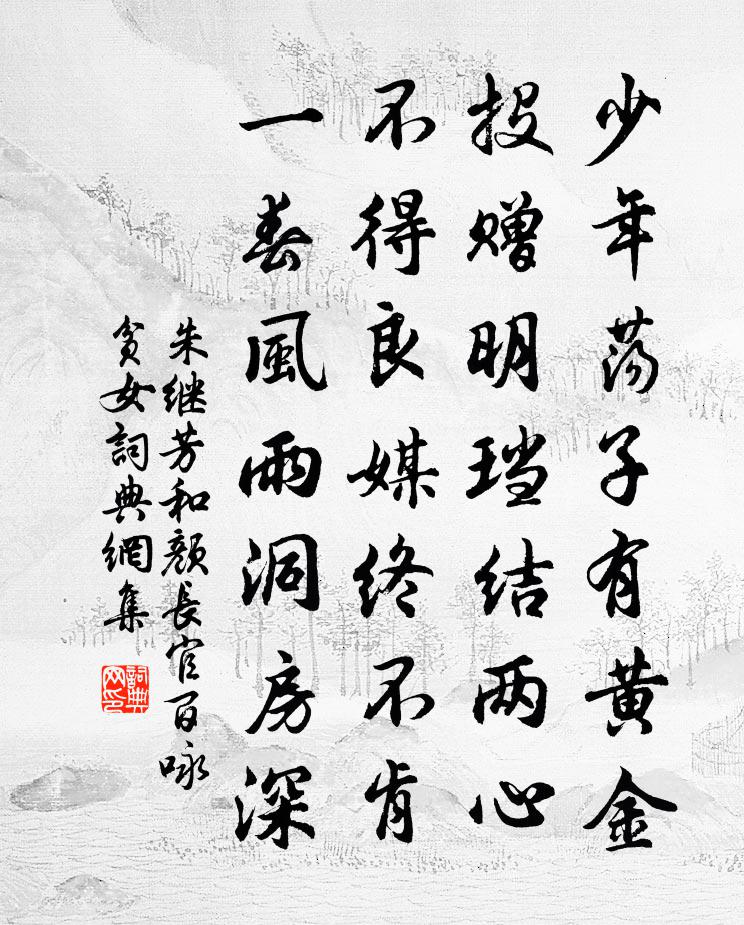 少年荡子有黄金
投赠明珰结两心
不得良媒终不肯
一春風雨洞房深
朱继芳和颜長官百咏
貧女詞典網集
詞典网印